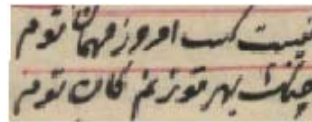 نیست کسب امروز مهمان توم
چنگ بهر تو زنم کان توم